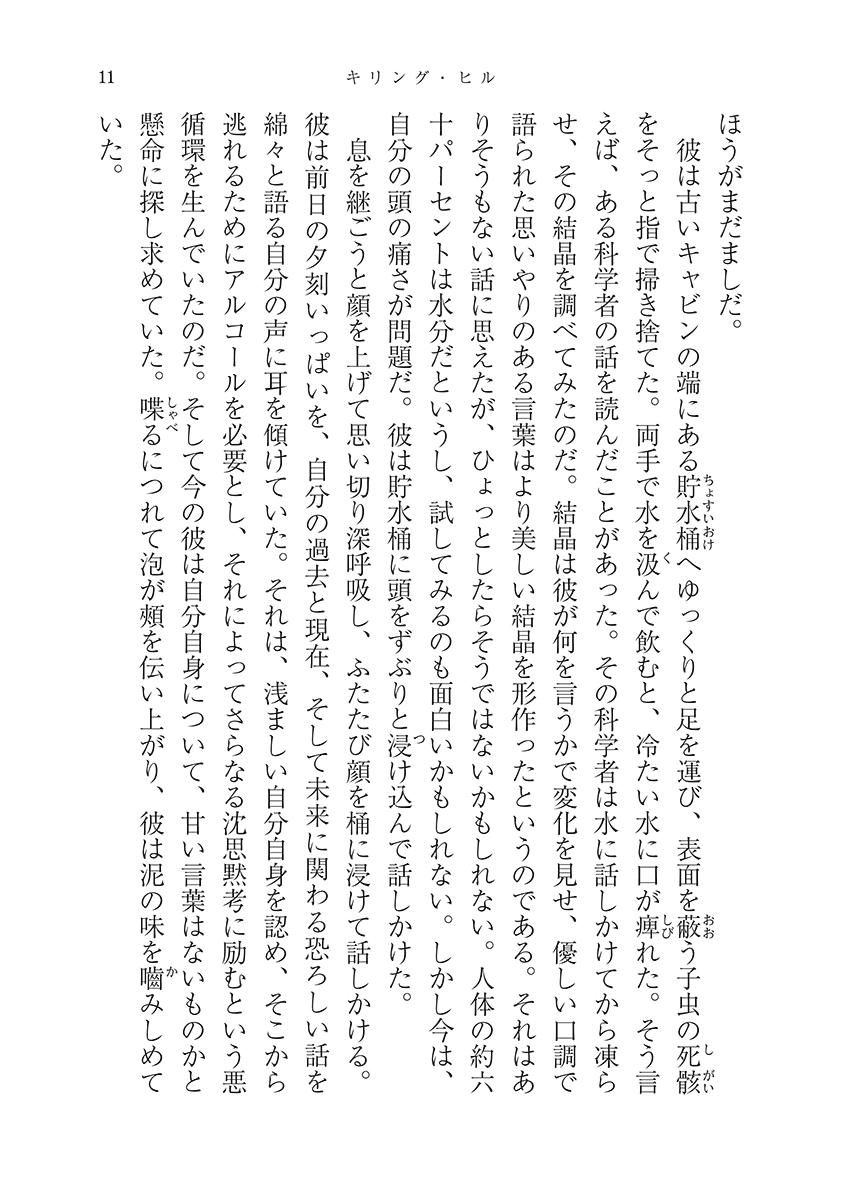 11
キリング・ヒル
ほうがまだましだ。
　彼は古いキャビンの端にある貯水桶へゆっくりと足を運び、表面を蔽う子虫の死骸
をそっと指で掃き捨てた。両手で水を汲んで飲むと、冷たい水に口が痺れた。そう言
えば、ある科学者の話を読んだことがあった。その科学者は水に話しかけてから凍ら
せ、その結晶を調べてみたのだ。結晶は彼が何を言うかで変化を見せ、優しい口調で
語られた思いやりのある言葉はより美しい結晶を形作ったというのである。それはあ
りそうもない話に思えたが、ひょっとしたらそうではないかもしれない。人体の約六
十パーセントは水分だというし、試してみるのも面白いかもしれない。しかし今は、
自分の頭の痛さが問題だ。彼は貯水桶に頭をずぶりと浸け込んで話しかけた。
　息を継ごうと顔を上げて思い切り深呼吸し、ふたたび顔を桶に浸けて話しかける。
彼は前日の夕刻いっぱいを、自分の過去と現在、そして未来に関わる恐ろしい話を
綿々と語る自分の声に耳を傾けていた。それは、浅ましい自分自身を認め、そこから
逃れるためにアルコールを必要とし、それによってさらなる沈思黙考に励むという悪
循環を生んでいたのだ。そして今の彼は自分自身について、甘い言葉はないものかと
懸命に探し求めていた。喋るにつれて泡が頰を伝い上がり、彼は泥の味を嚙みしめて
いた。